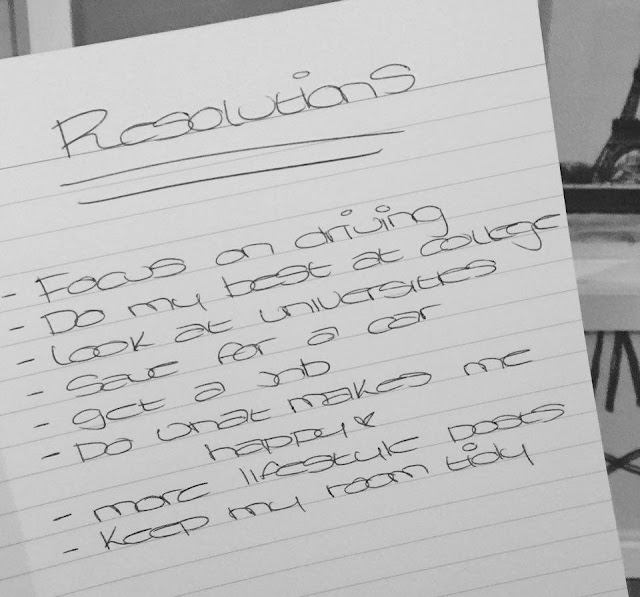 Resolutions
- Focus on driving
- Do my best at college
- Look at universities
- Save for a car
- get a job
- Do what makes me
happy ♥
- more lifestyle posts
- Keep my room tidy